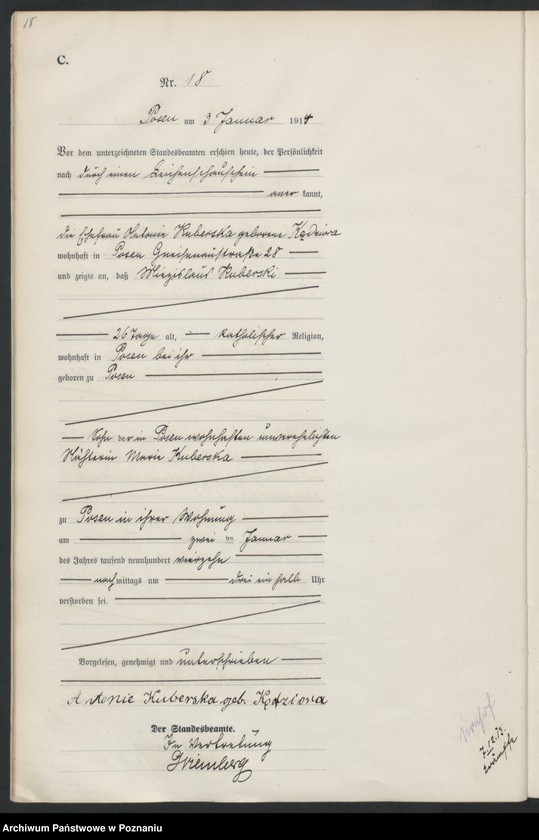 18
C.
Nr. 18
Posen am 3 Januar 1914
Vor dem unterzeichneten Standesbeamten erschien heute, der Persönlichkeit
nach durch einen Leichenschauschein
aner kannt,
die Ehefrau Antonie Kuberska geborene Kędziora
wohnhaft in Posen Gneisenaustraße 28
und zeigte an, daß Miezislaus Kuberski
26 Tage alt, katholischer Religion,
wohnhaft in Posen bei ihr
geboren zu Posen
Sohn der in Posen wohnhaften unverehelichten
Marie Kuberska
zu Posen in ihrer Wohnung
am zwei ten Januar
des Jahres tausend neunhundert vierzehn
nachmittags um drei ein halb Uhr
verstorben sei.
Vorgelesen, genehmigt und unterschrieben
Antonie Kuberska geb. Kędziora
Der Standesbeamte.
In Vertretung
7.12.
Archiwum Państwowe w Poznaniu